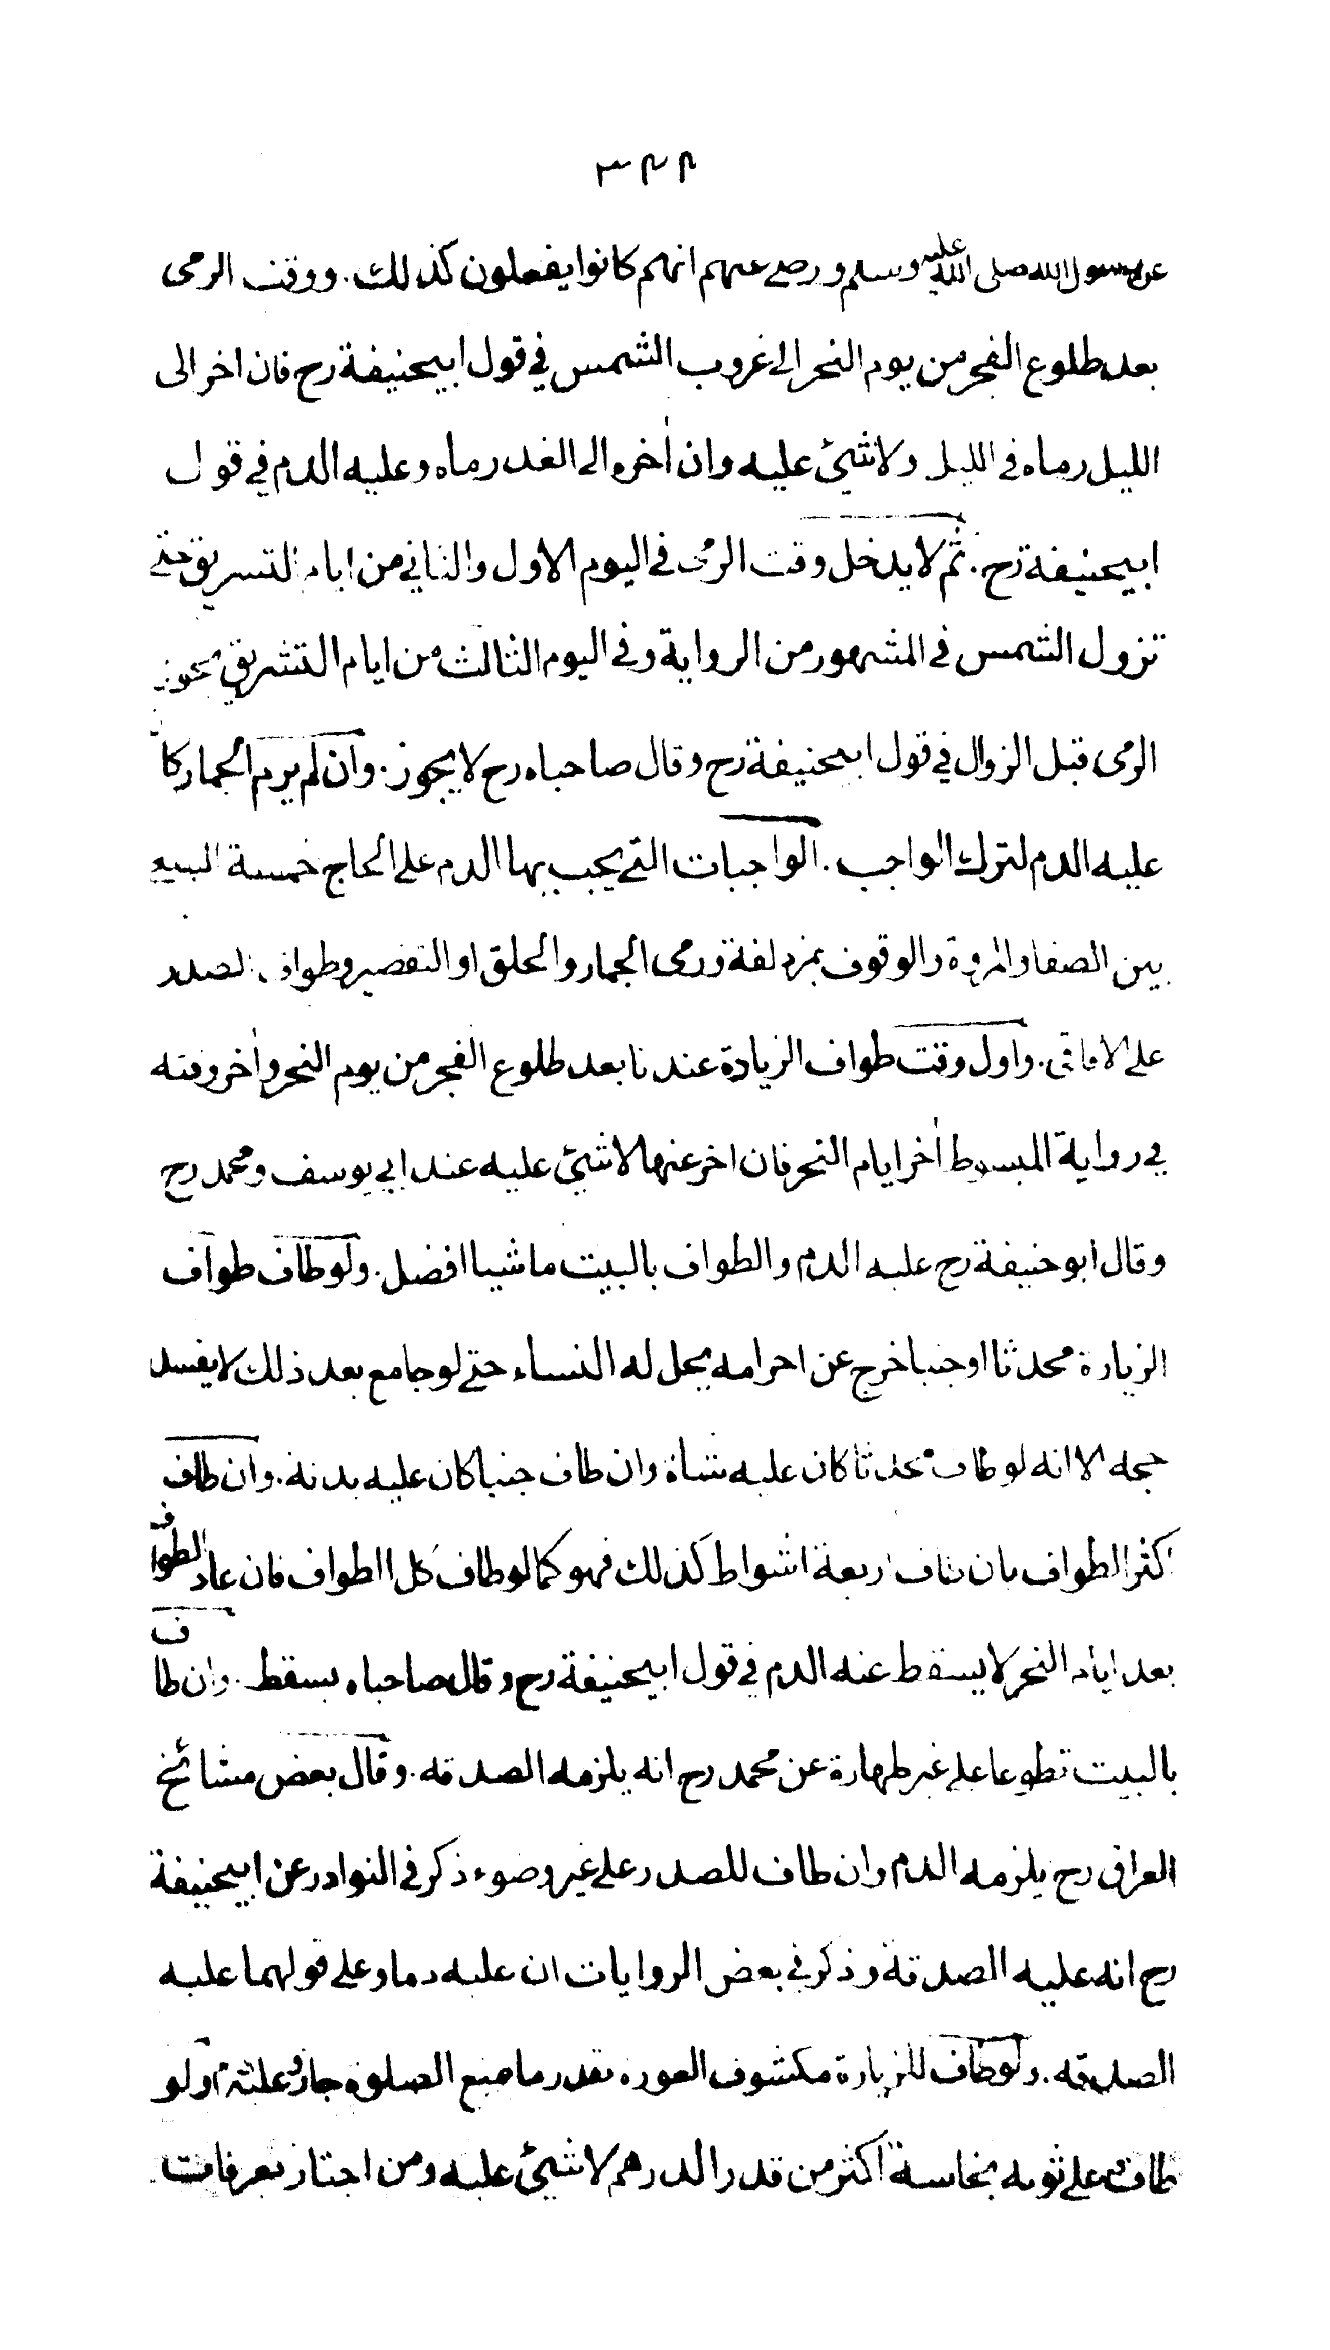 ٣٤٤
عن رسول الله صلى الله عليه وسلم ورضي عنهم انهم كانوا يفعلون كذلك . ووقت الرمى
بعد طلوع الفجر من يوم النحر الى غروب الشمس في قول ابيحنيفة رح فان اخر الى
الليل رماه في الليل ولا شيئ عليه وان أخره الى الغد رماه وعليه الدم في قول
ابيحنيفة رح . ثم لا يدخل وقت الرمى في اليوم الاول والثاني من ايام التشريق حتى
تزول الشمس في المشهور من الرواية وفي اليوم الثالث من ايام التشريق يجوز
الرمى قبل الزوال في قول ابيحنيفة رح وقال صاحباه رح لا يجوز . وان لم يرم الجمار كان
عليه الدم لترك الواجب . الواجبات التي يجب بها الدم على الحاج خمسة السعي
بين الصفا والمروة والوقوف بمزدلفة ورمى الجمار والحلق او التقصير وطواف الصدر
على الافاقي . واول وقت طواف الزيادة عندنا بعد طلوع الفجر من يوم النحر وأخر وقته
في رواية المبسوط أخر ايام النحر فان اخر عنها لا شيئ عليه عند ابي يوسف ومحمد رح
وقال ابو حنيفة رح عليه الدم والطواف بالبيت ماشيا افضل . ولو طاف طواف
الزيارة محدثا او جنبا خرج عن احرامه يحل له النساء حتى لو جامع بعد ذلك لا يفسد
حجه الا انه لو طاف محدثا كان عليه شاة وان طاف جنبا كان عليه بدنة . وان طاف
اكثر الطواف بان طاف اربعة اشواط كذلك فهو كما لو طاف كل الطواف فان عاد الطواف
بعد ايام النحر لا يسقط عنه الدم في قول ابيحنيفة رح وقال صاحباه يسقط . وان طاف
بالبيت تطوعا على غير طهارة عن محمد رح انه يلزمه الصدقه . وقال بعض مشائخ
العراق رح يلزمه الدم وان طاف للصدر على غير وضوء ذكر في النوادر عن ابيحنيفة
رح انه عليه الصدقة وذكر في بعض الروايات ان عليه دما وعلى قولهما عليه
الصدقه . ولو طاف للزيارة مكشوف العورة بقدر ما منع الصلوة جاز وعليه دم ولو
طاف وعلى ثوبه نجاسة اكثر من قدر الدرهم لا شيئ عليه ومن اجتاز بعرفات